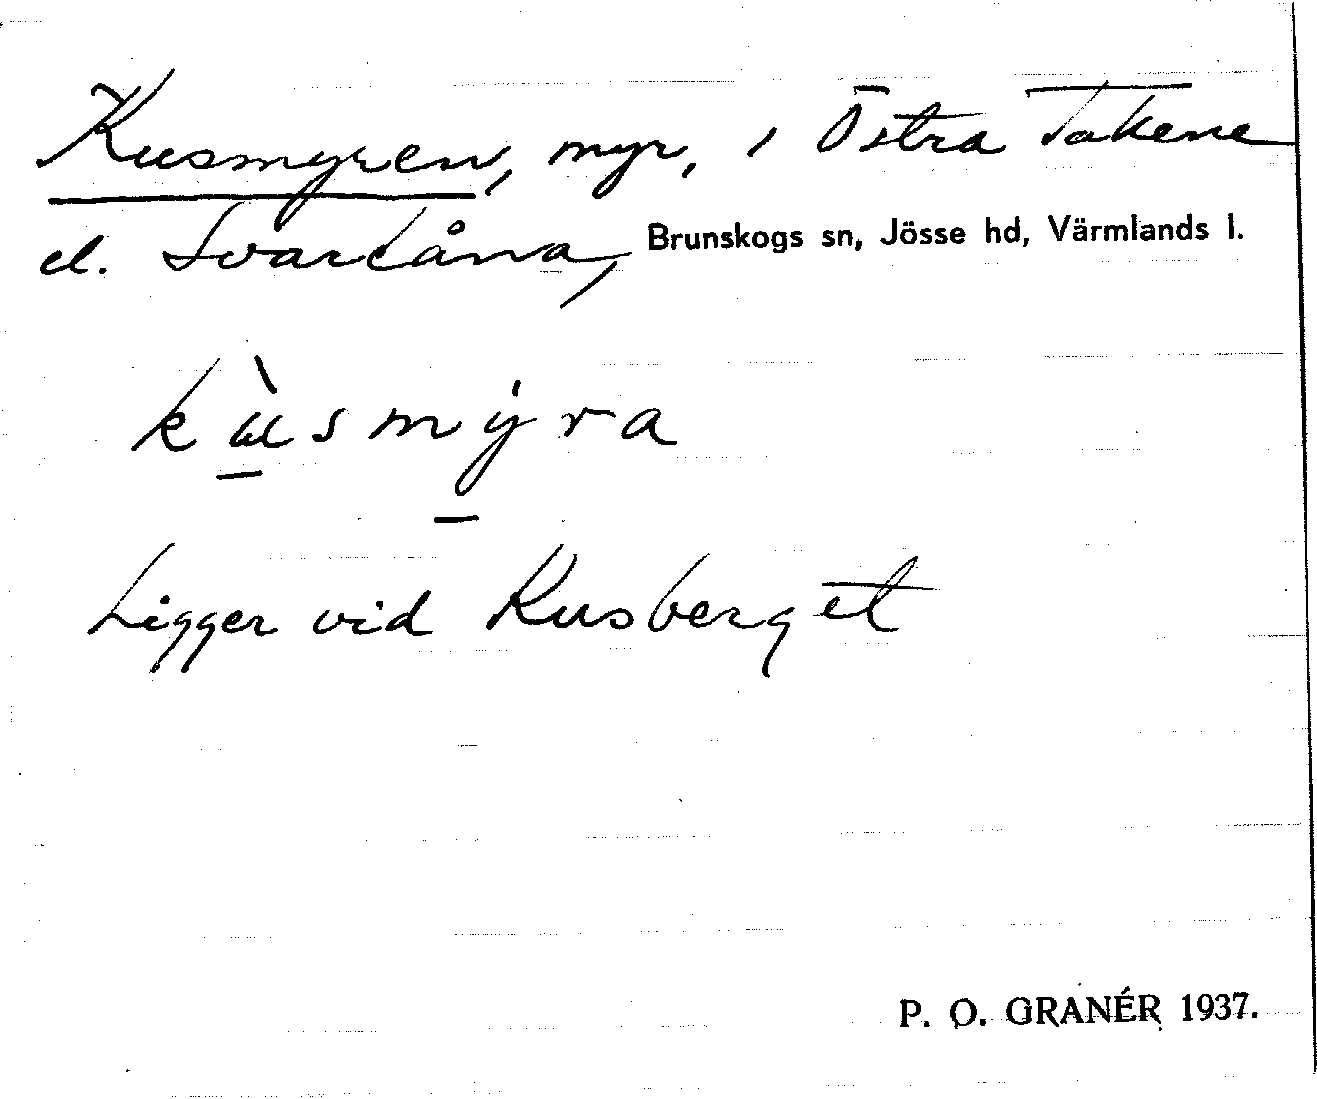 Kusmyren, myr, i Östra Takene
el. Svartåna, Brunskogs sn, Jösse hd, Värmlands l.
kùsmy̍ra
Ligger vid Kusberget
P. O. GRANÉR 1937.